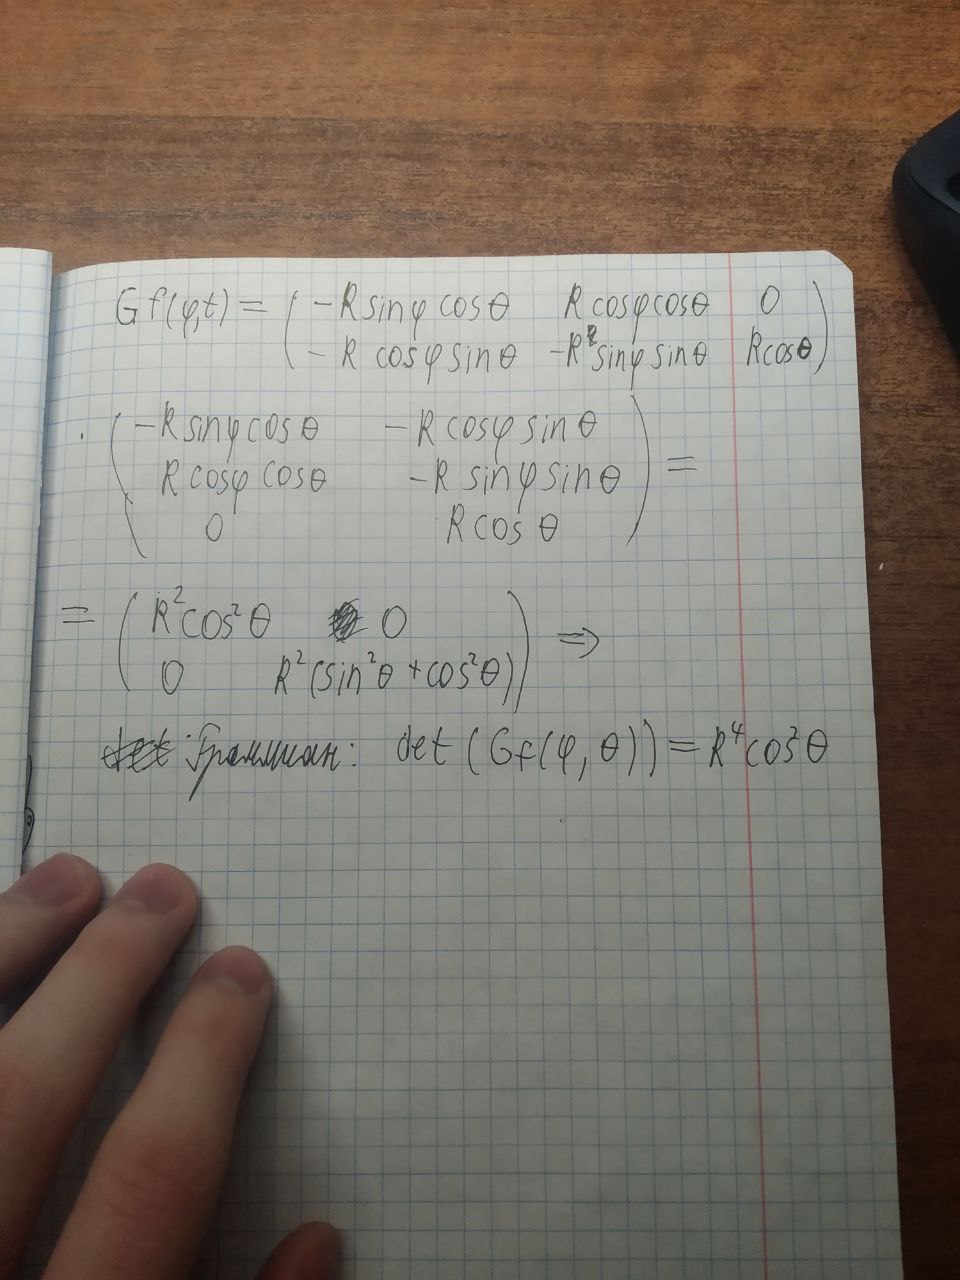 Gf(φ,t) = ( -R sinφ cosθ   R cosφ cosθ   0
- R cosφ sinθ   -R sinφ sinθ   R cosθ )
· ( -R sinφ cosθ   - R cosφ sinθ
R cosφ cosθ   -R sinφ sinθ ) =
0   R cos θ
= ( R² cos² θ   0
0   R² (sin²θ + cos²θ) ) ⇒
Грамиан: det (Gf(φ, θ)) = R⁴ cos² θ